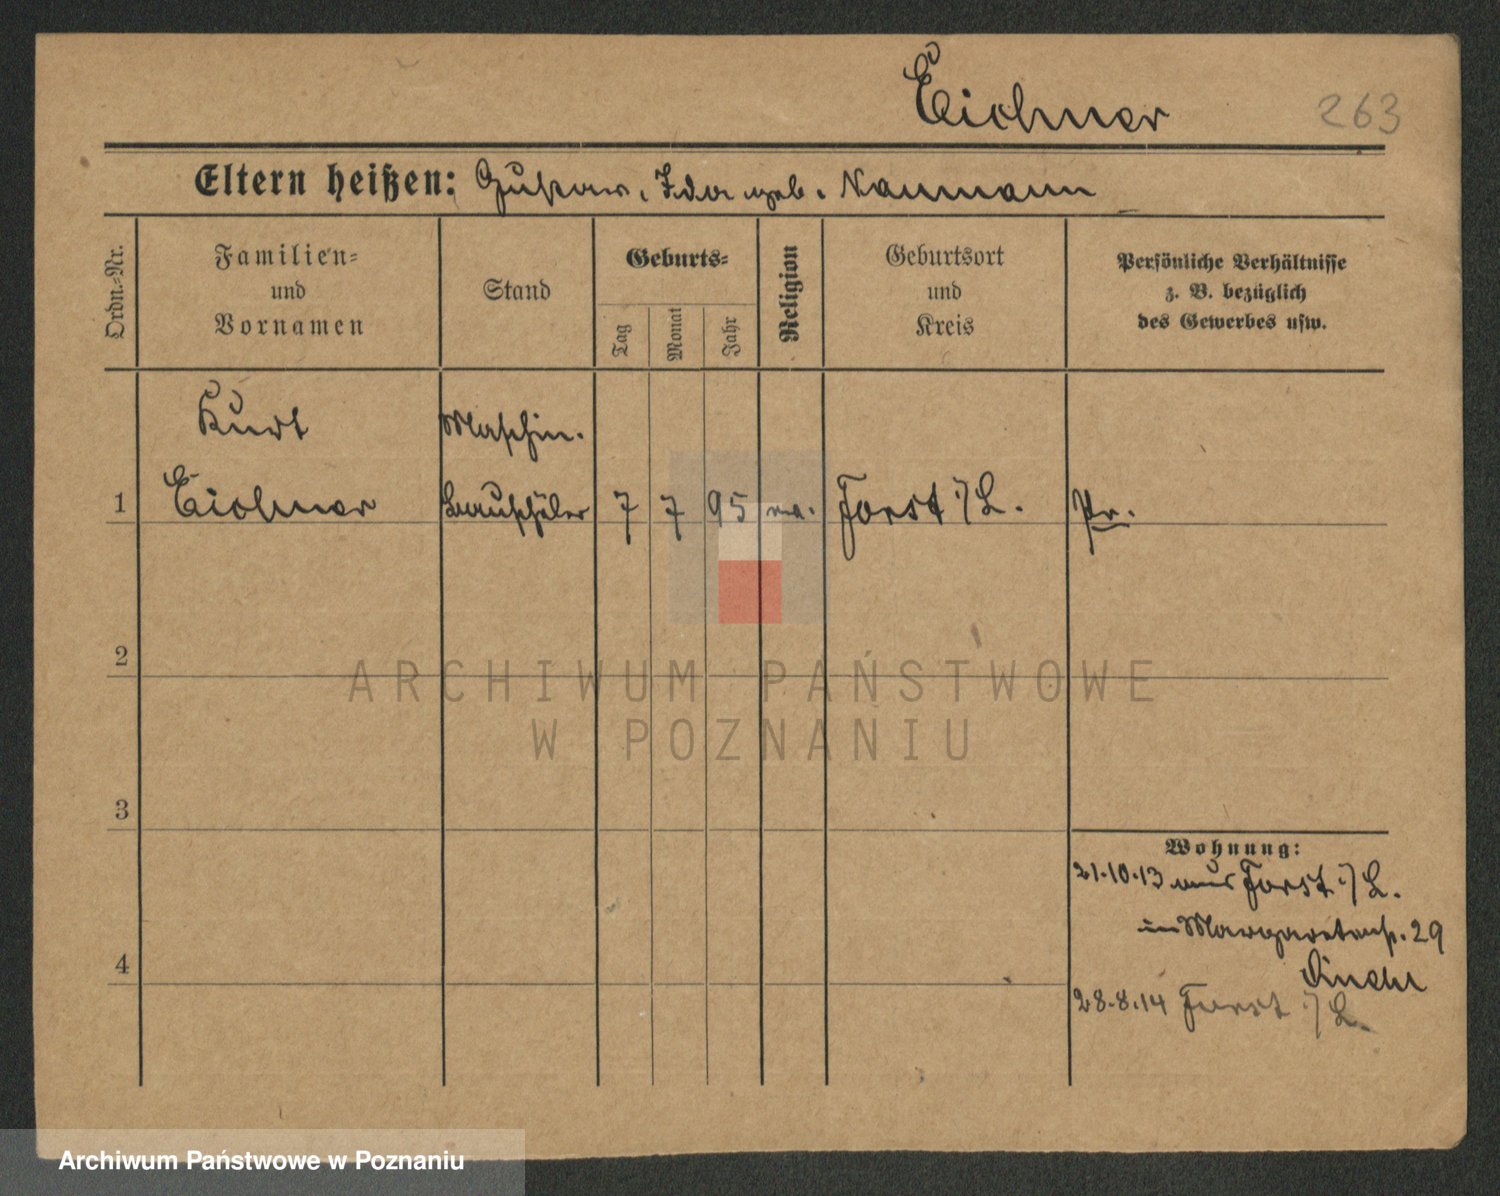 Eichner
263
Eltern heißen: Gustav, Ida geb. Naumann
Ordn.-Nr.
Familien-
und
Vornamen
Stand
Geburts-
Tag
Monat
Jahr
Religion
Geburtsort
und
Kreis
Persönliche Verhältnisse
z. B. bezüglich
des Gewerbes usw.
Kurt
Maschin.
1 Eichner
Bauschüler 7 7 95 ev. Forst i/L. Pr.
2
3
4
Wohnung:
21.10.13 aus Forst i/L.
in Margaretenstr. 29
28.8.14 Forst i/L.
ARCHIWUM PAŃSTWOWE
W POZNANIU
Archiwum Państwowe w Poznaniu